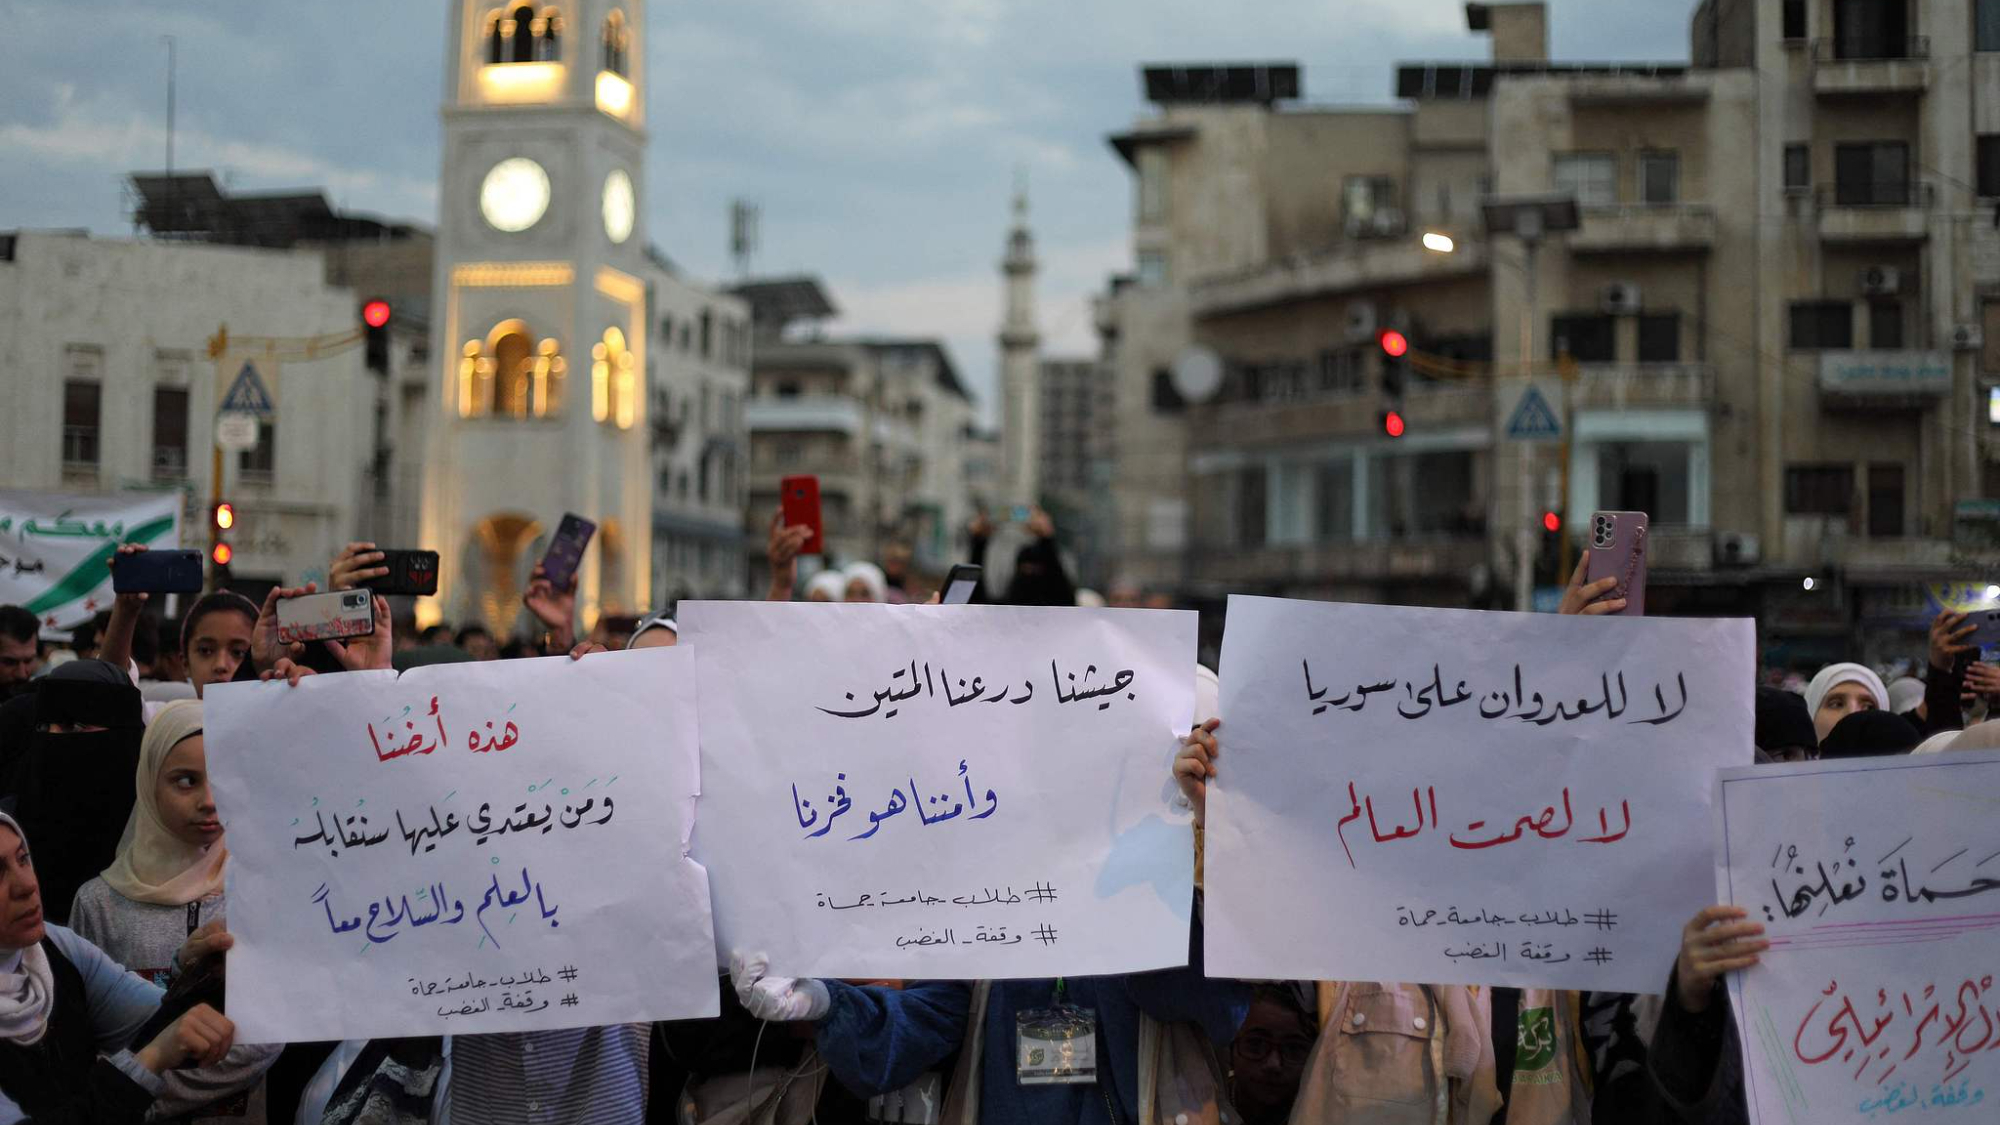 معكم
هَذه أَرضُنَا
وَمَنْ يَعْتدي عَليها سنُقابلهُ
بالعِلْمِ والسّلاحِ معاً
# طلاب_جامعة_حماة
# وقفة_الغضب
جيشنا درعنا المتين
وأمننا هو فخرنا
# طلاب_جامعة_حماة
# وقفة_الغضب
لا للعدوان على سوريا
لا لصمت العالم
# طلاب_جامعة_حماة
# وقفة الغضب
حَمَاة نُعْلِنُهَا:
الإسْرائيليّ
بركة